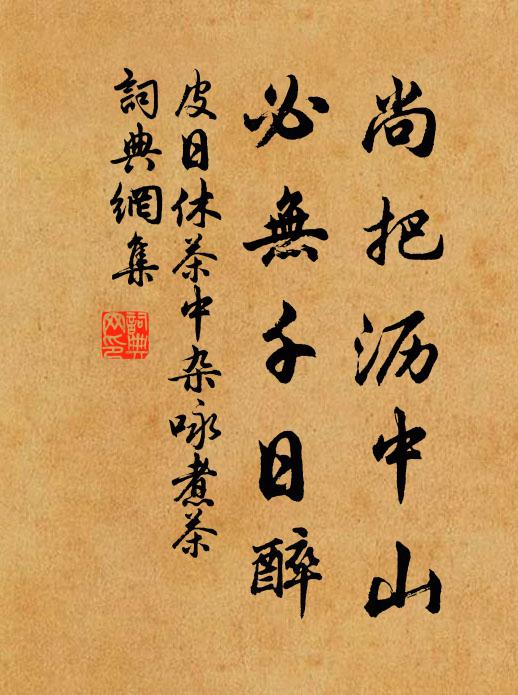 尚把沥中山
必無千日醉
皮日休茶中杂咏煮茶
詞典網集
詞典
网印